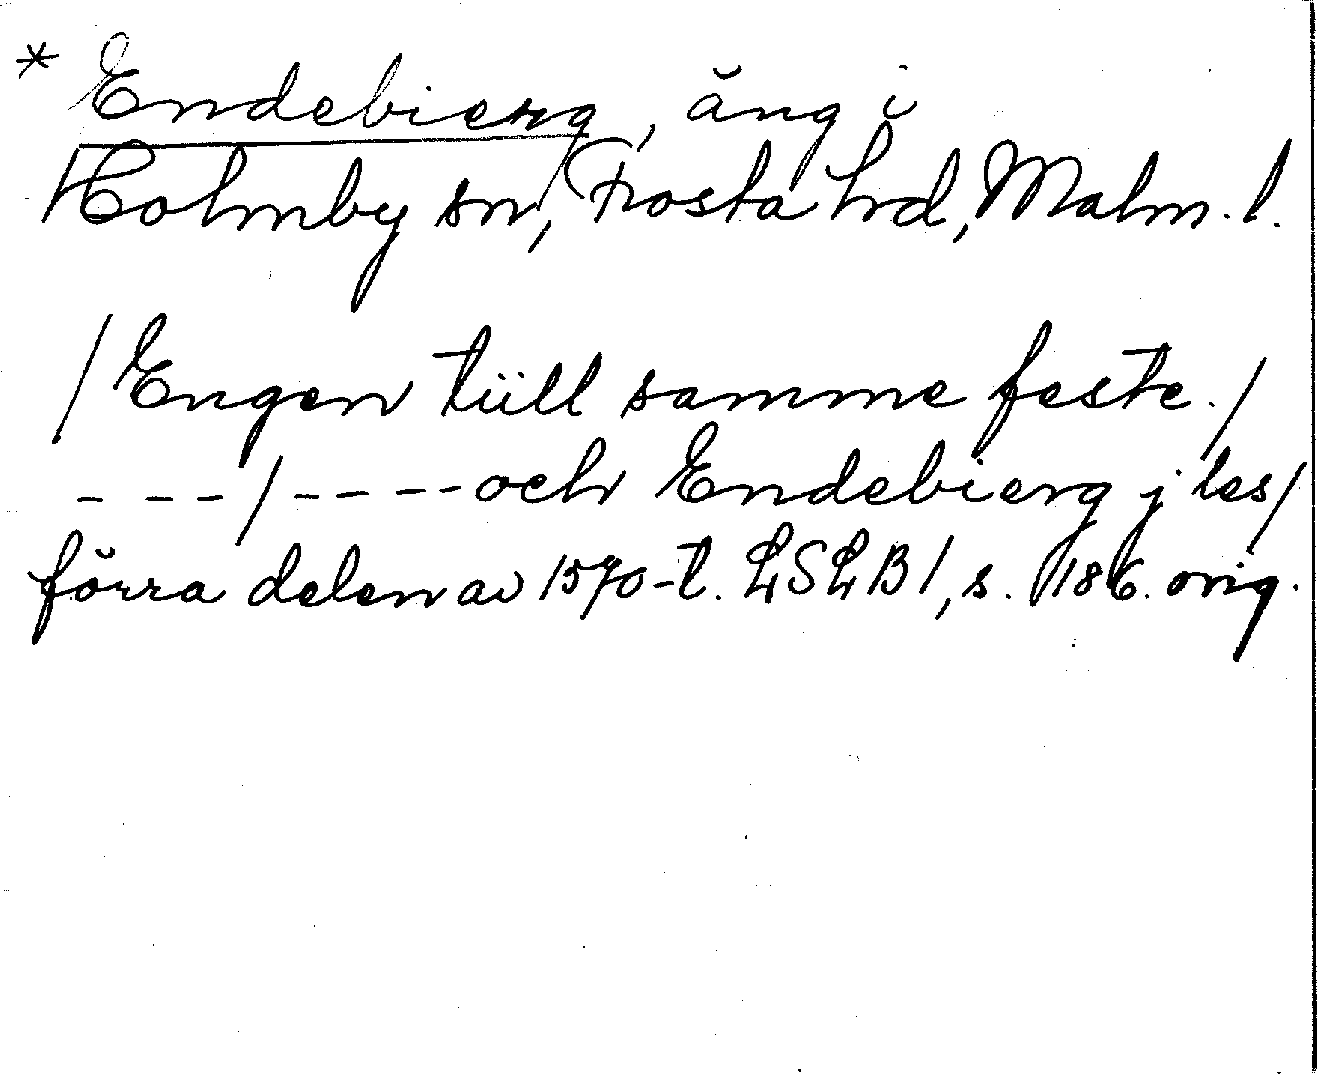 * Endebierg, äng i
Holmby sn, Frosta hrd, Malm. l.
/Engen tüll samme feste./
- - - / - - - - och Endebierg j les/
förra delen av 1570-t. LSLB 1, s. 186. orig.